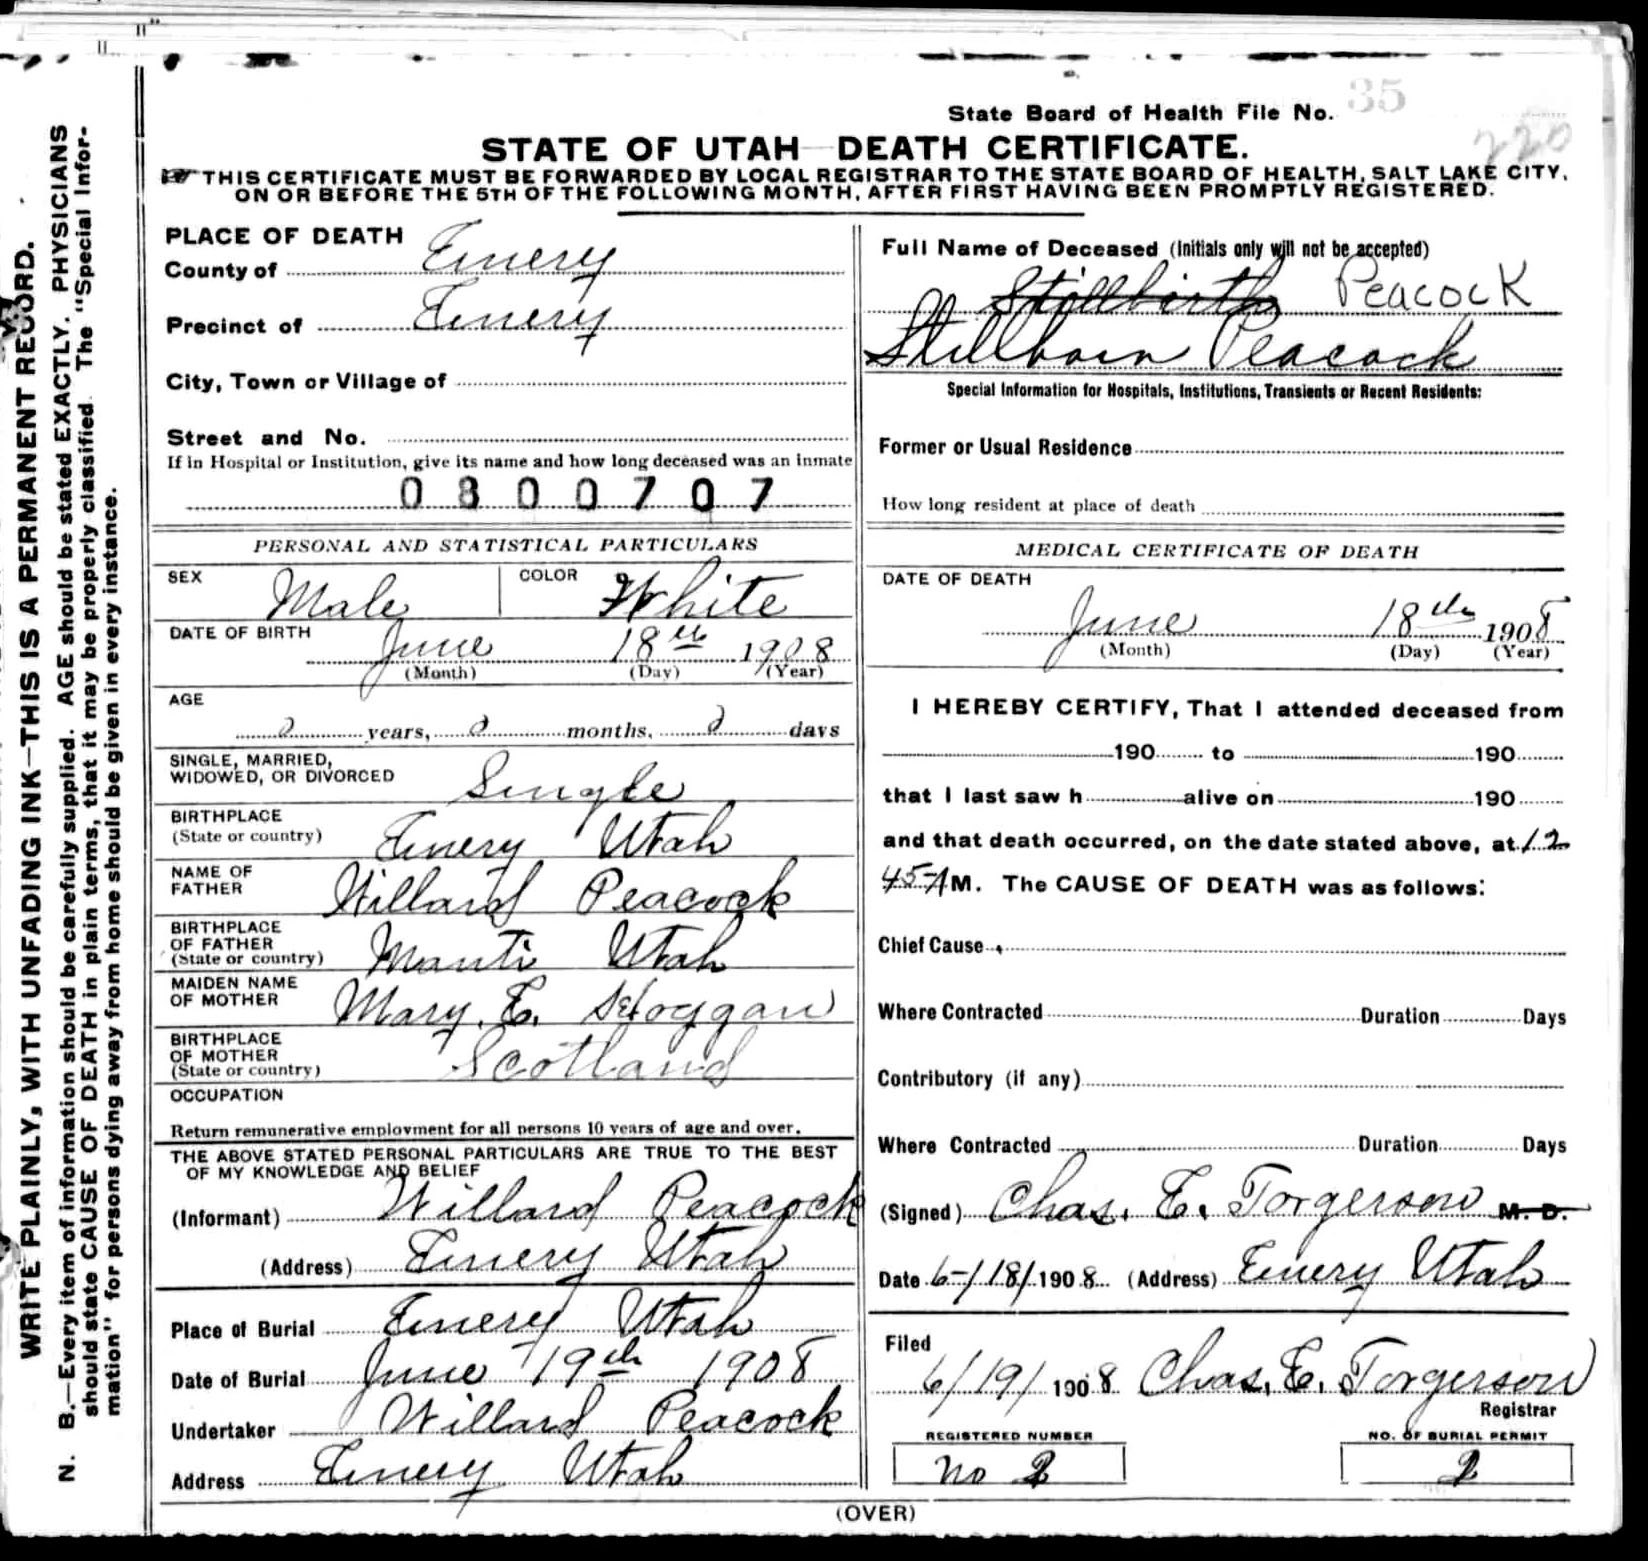 State Board of Health File No. 35
220
STATE OF UTAH—DEATH CERTIFICATE.
THIS CERTIFICATE MUST BE FORWARDED BY LOCAL REGISTRAR TO THE STATE BOARD OF HEALTH, SALT LAKE CITY,
ON OR BEFORE THE 5TH OF THE FOLLOWING MONTH, AFTER FIRST HAVING BEEN PROMPTLY REGISTERED.
WRITE PLAINLY, WITH UNFADING INK—THIS IS A PERMANENT RECORD.
N. B.—Every item of information should be carefully supplied. AGE should be stated EXACTLY. PHYSICIANS
should state CAUSE OF DEATH in plain terms, that it may be properly classified. The "Special Infor-
mation" for persons dying away from home should be given in every instance.
PLACE OF DEATH
County of Emery
Precinct of Emery
City, Town or Village of
Street and No.
If in Hospital or Institution, give its name and how long deceased was an inmate
0800707
PERSONAL AND STATISTICAL PARTICULARS
SEX Male COLOR White
DATE OF BIRTH June 18th 1908
(Month) (Day) (Year)
AGE
0 years, 0 months, 0 days
SINGLE, MARRIED,
WIDOWED, OR DIVORCED Single
BIRTHPLACE
(State or country) Emery Utah
NAME OF
FATHER Willard Peacock
BIRTHPLACE
OF FATHER
(State or country) Manti Utah
MAIDEN NAME
OF MOTHER Mary. E. Hoggan
BIRTHPLACE
OF MOTHER
(State or country) Scotland
OCCUPATION
Return remunerative employment for all persons 10 years of age and over.
THE ABOVE STATED PERSONAL PARTICULARS ARE TRUE TO THE BEST
OF MY KNOWLEDGE AND BELIEF
(Informant) Willard Peacock
(Address) Emery Utah
Place of Burial Emery Utah
Date of Burial June 19th 1908
Undertaker Willard Peacock
Address Emery Utah
Full Name of Deceased (Initials only will not be accepted)
Stillbirth Peacock
Stillborn Peacock
Special Information for Hospitals, Institutions, Transients or Recent Residents:
Former or Usual Residence
How long resident at place of death
MEDICAL CERTIFICATE OF DEATH
DATE OF DEATH
June 18th 1908
(Month) (Day) (Year)
I HEREBY CERTIFY, That I attended deceased from
190 to 190
that I last saw h alive on 190
and that death occurred, on the date stated above, at 12
45 AM. The CAUSE OF DEATH was as follows:
Chief Cause
Where Contracted Duration Days
Contributory (if any)
Where Contracted Duration Days
(Signed) Chas. E. Torgerson M. D.
Date 6/18/1908 (Address) Emery Utah
Filed
6/19/1908 Chas. E. Torgerson
Registrar
REGISTERED NUMBER
No 2
NO. OF BURIAL PERMIT
2
(OVER)